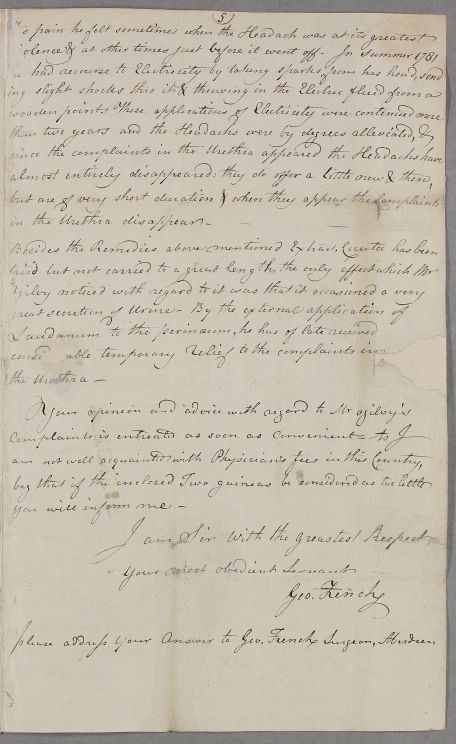 5
's pain he felt sometimes when the Headach was at its greatest
violence & at other times just before it went off - In summer 1781
had recourse to Electricity by taking sparks from his head, send
ing slight shocks thro it & throwing in the Electric fluid from a
wooden point. These applications of Electricity were continued more
than two years and the Headachs were by degrees alleviated, &
since the complaints in the Urethra appeared the Headachs have
almost entirely disappeared: they do offer a little now & then,
but are of very short duration & when they appear the Complaints
in the Urethra disappear -
Besides the Remedies above mentioned Extract. Cicutæ has been
tried but not carried to a great length, the only effect which Mr
Ogilvy noticed with regard to it was that it occasioned a very
great secretion of Urine - By the external application of
Laudanum to the perinæum, he has of late received
consid able temporary relief to the complaints in
the Urethra -
Your opinion and advice with regard to Mr Ogilvy's
Complaints is entreated as soon as convenient - As I
am not well acquainted with Physicians fees in this Country,
beg that if the inclosed Two guineas be considered as too little
you will inform me -
I am Sir With the greatest Respect
Your most obedient Servant
Geo. French
please address your Answer to Geo. French Surgeon, Aberdeen